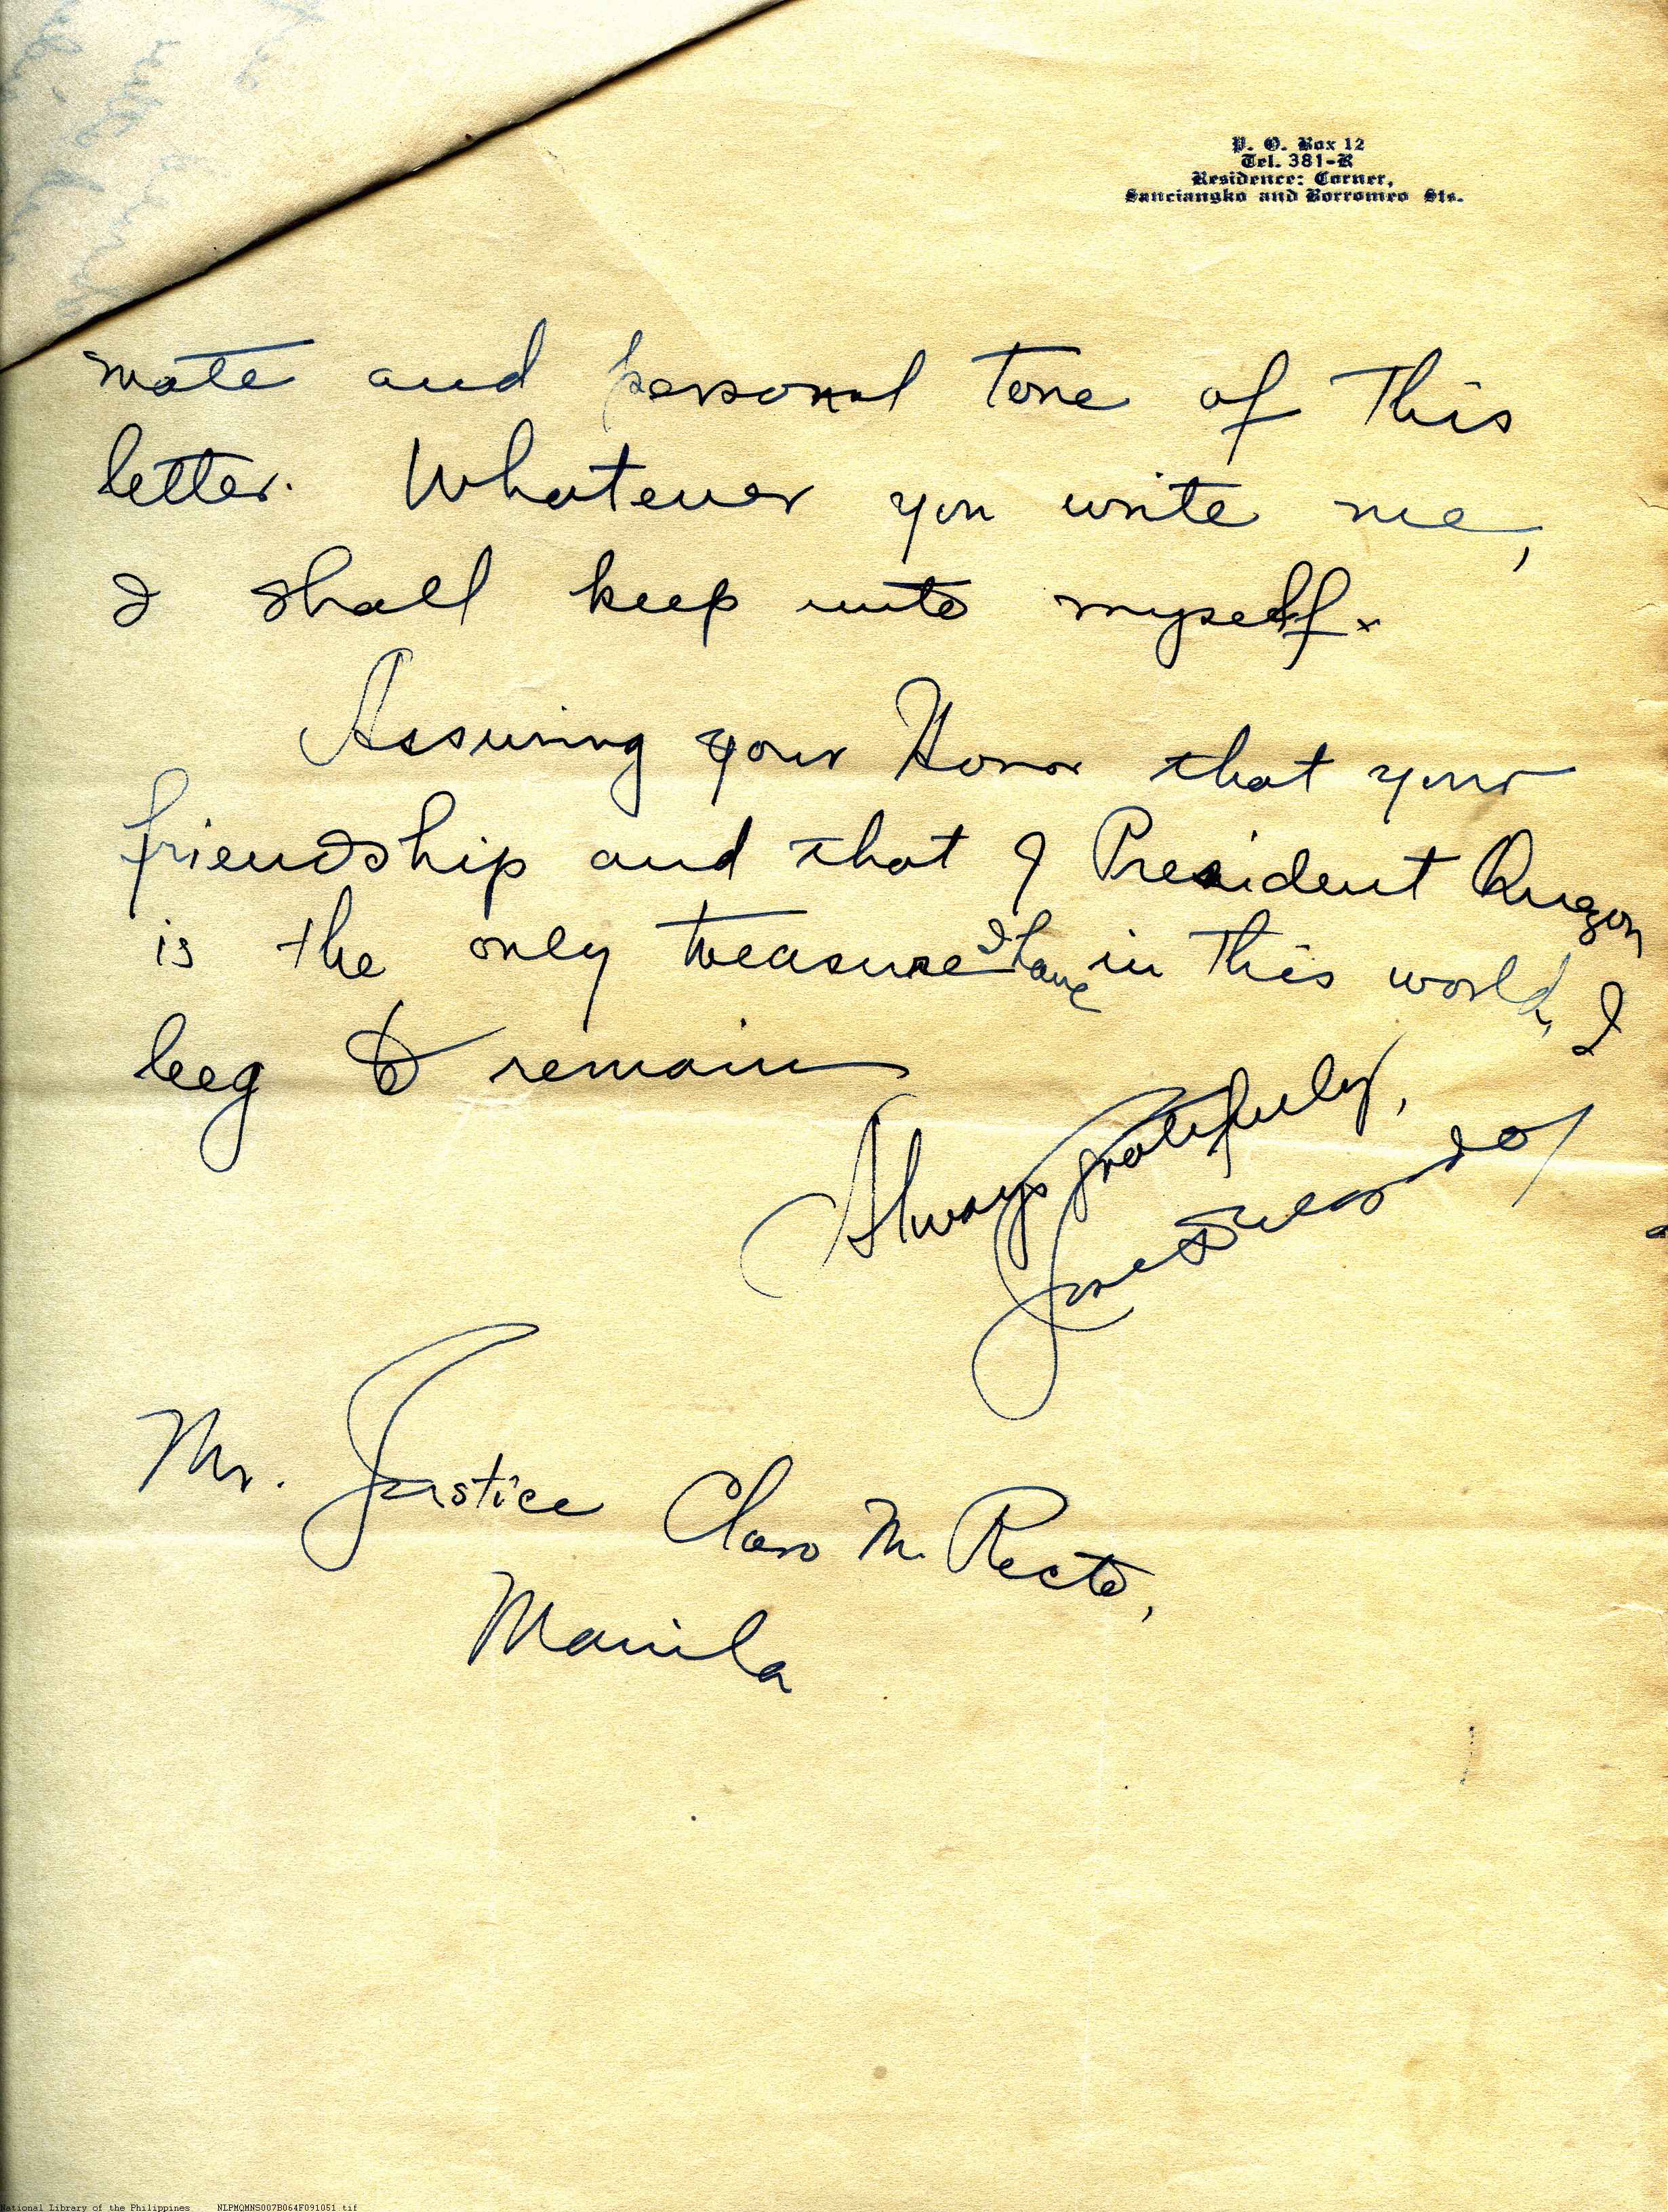 P. O. Box 12
Tel. 381-R
Residence: Corner,
Sanciangko and Borromeo Sts.
mate and personal tone of this
letter. Whatever you write me,
I shall keep unto myself.
Assuring your Honor that your
friendship and that of President Quezon
is the only treasure I have in this world, I
beg to remain
Always gratefully,
Mr. Justice Claro M. Recto,
Manila
National Library of the Philippines NLPMQMNS007B064F091051 tif